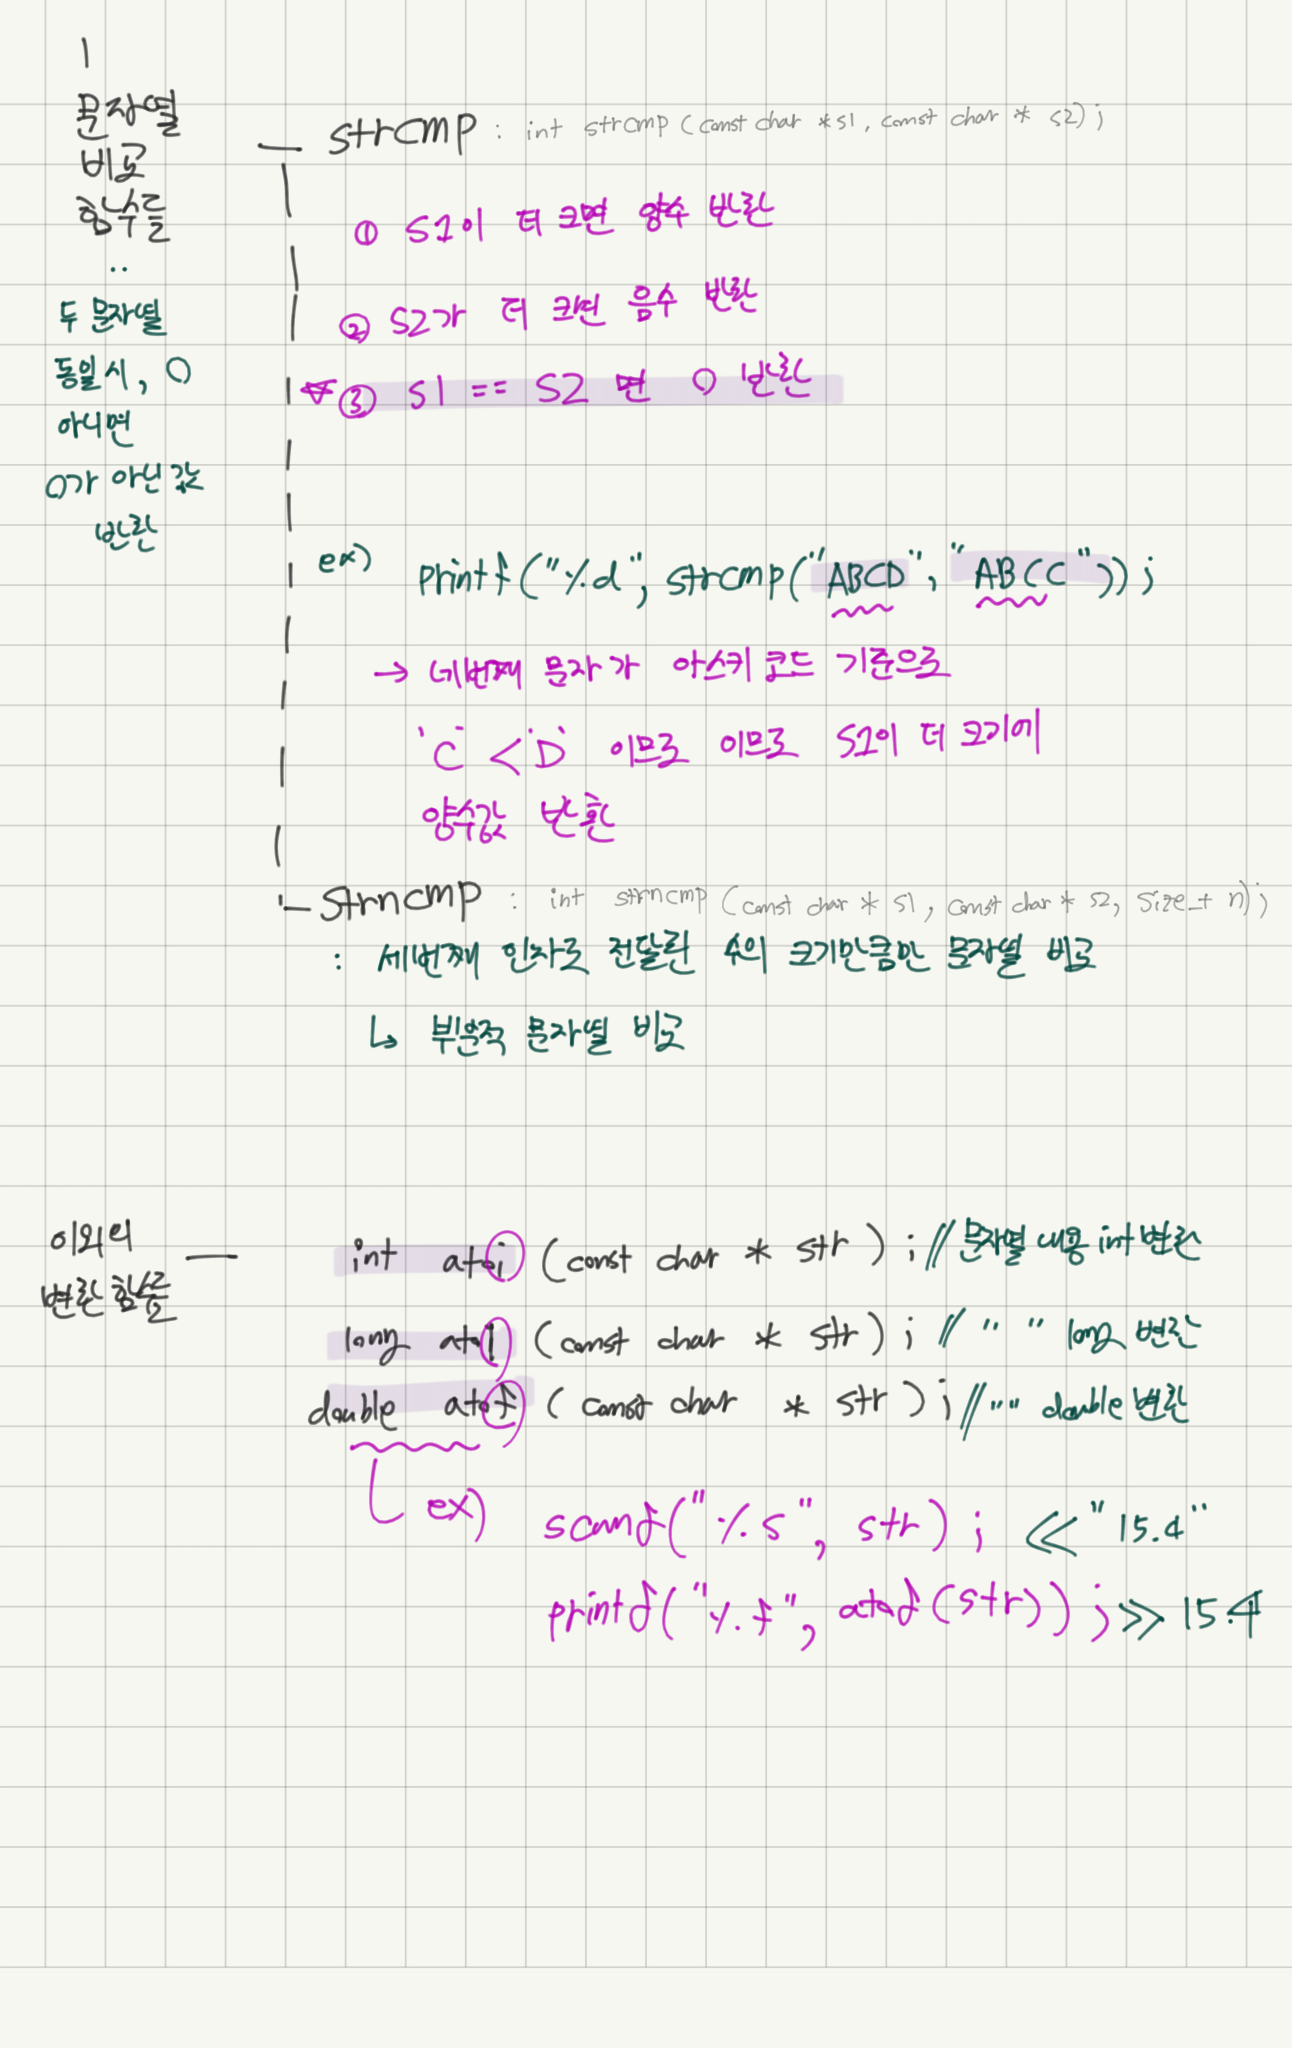 문자열
비교
함수들
..
두 문자열
동일시, 0
아니면
0가 아닌 값
반환
strcmp : int strcmp (const char * s1, const char * s2);
① S1이 더 크면 양수 반환
② S2가 더 크면 음수 반환
③ S1 == S2 면 0 반환
ex) printf("%d", strcmp("ABCD", "ABCC"));
→ 네번째 문자가 아스키 코드 기준으로
'C' < 'D' 이므로 이므로 S1이 더 크기에
양수값 반환
strncmp : int strncmp (const char * s1, const char * s2, size_t n);
: 세번째 인자로 전달된 수의 크기만큼만 문자열 비교
↳ 부분적 문자열 비교
이외의
변환 함수들
int atoi (const char * str); // 문자열 내용 int 변환
long atol (const char * str); // " " long 변환
double atof (const char * str); // " " double 변환
ex) scanf("%s", str); << "15.4"
printf("%f", atof(str)); >> 15.4